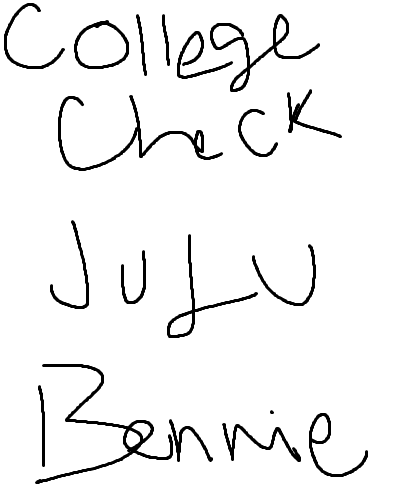 College
Check
Bennie